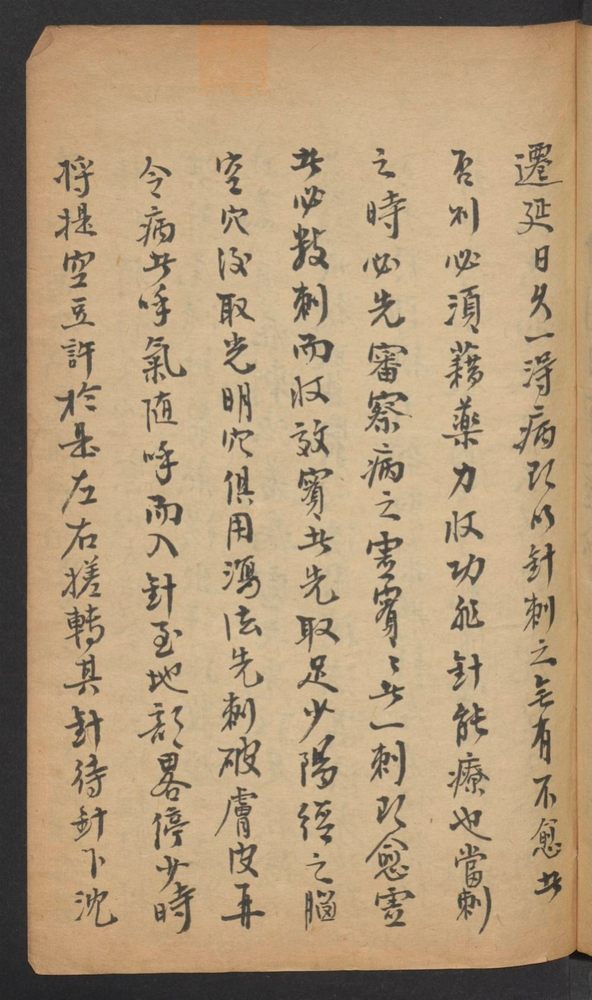 遷延日久一得病即以針刺之無有不愈者
否則必須藉藥力收功非針能療也當刺
之時必先審察病之虛實〻者一刺即愈虛
者必數刺而收效實者先取足少陽經之腦
空穴後取光明穴俱用瀉法先刺破膚皮再
令病者呼氣隨呼而入針至地部畧停少時
將提空豆許於是左右搓轉其針待針下沈